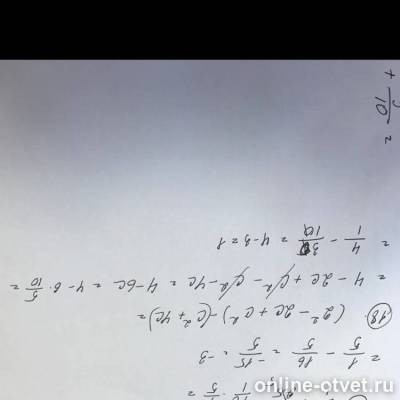 = 1/5 - 16/5 = -15/5 = -3
18. (2² - 2c + c²) - (c² + 4c) =
= 4 - 2c + c² - c² - 4c = 4 - 6c = 4 - 6 · 5/10 =
= 4/1 - 30/10 = 4-3=1
online-otvet.ru